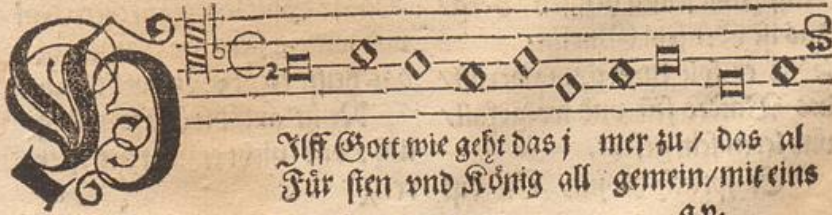 HJlff Gott wie geht das j mer zu / das al
Für sten vnd König all gemein/mit eins